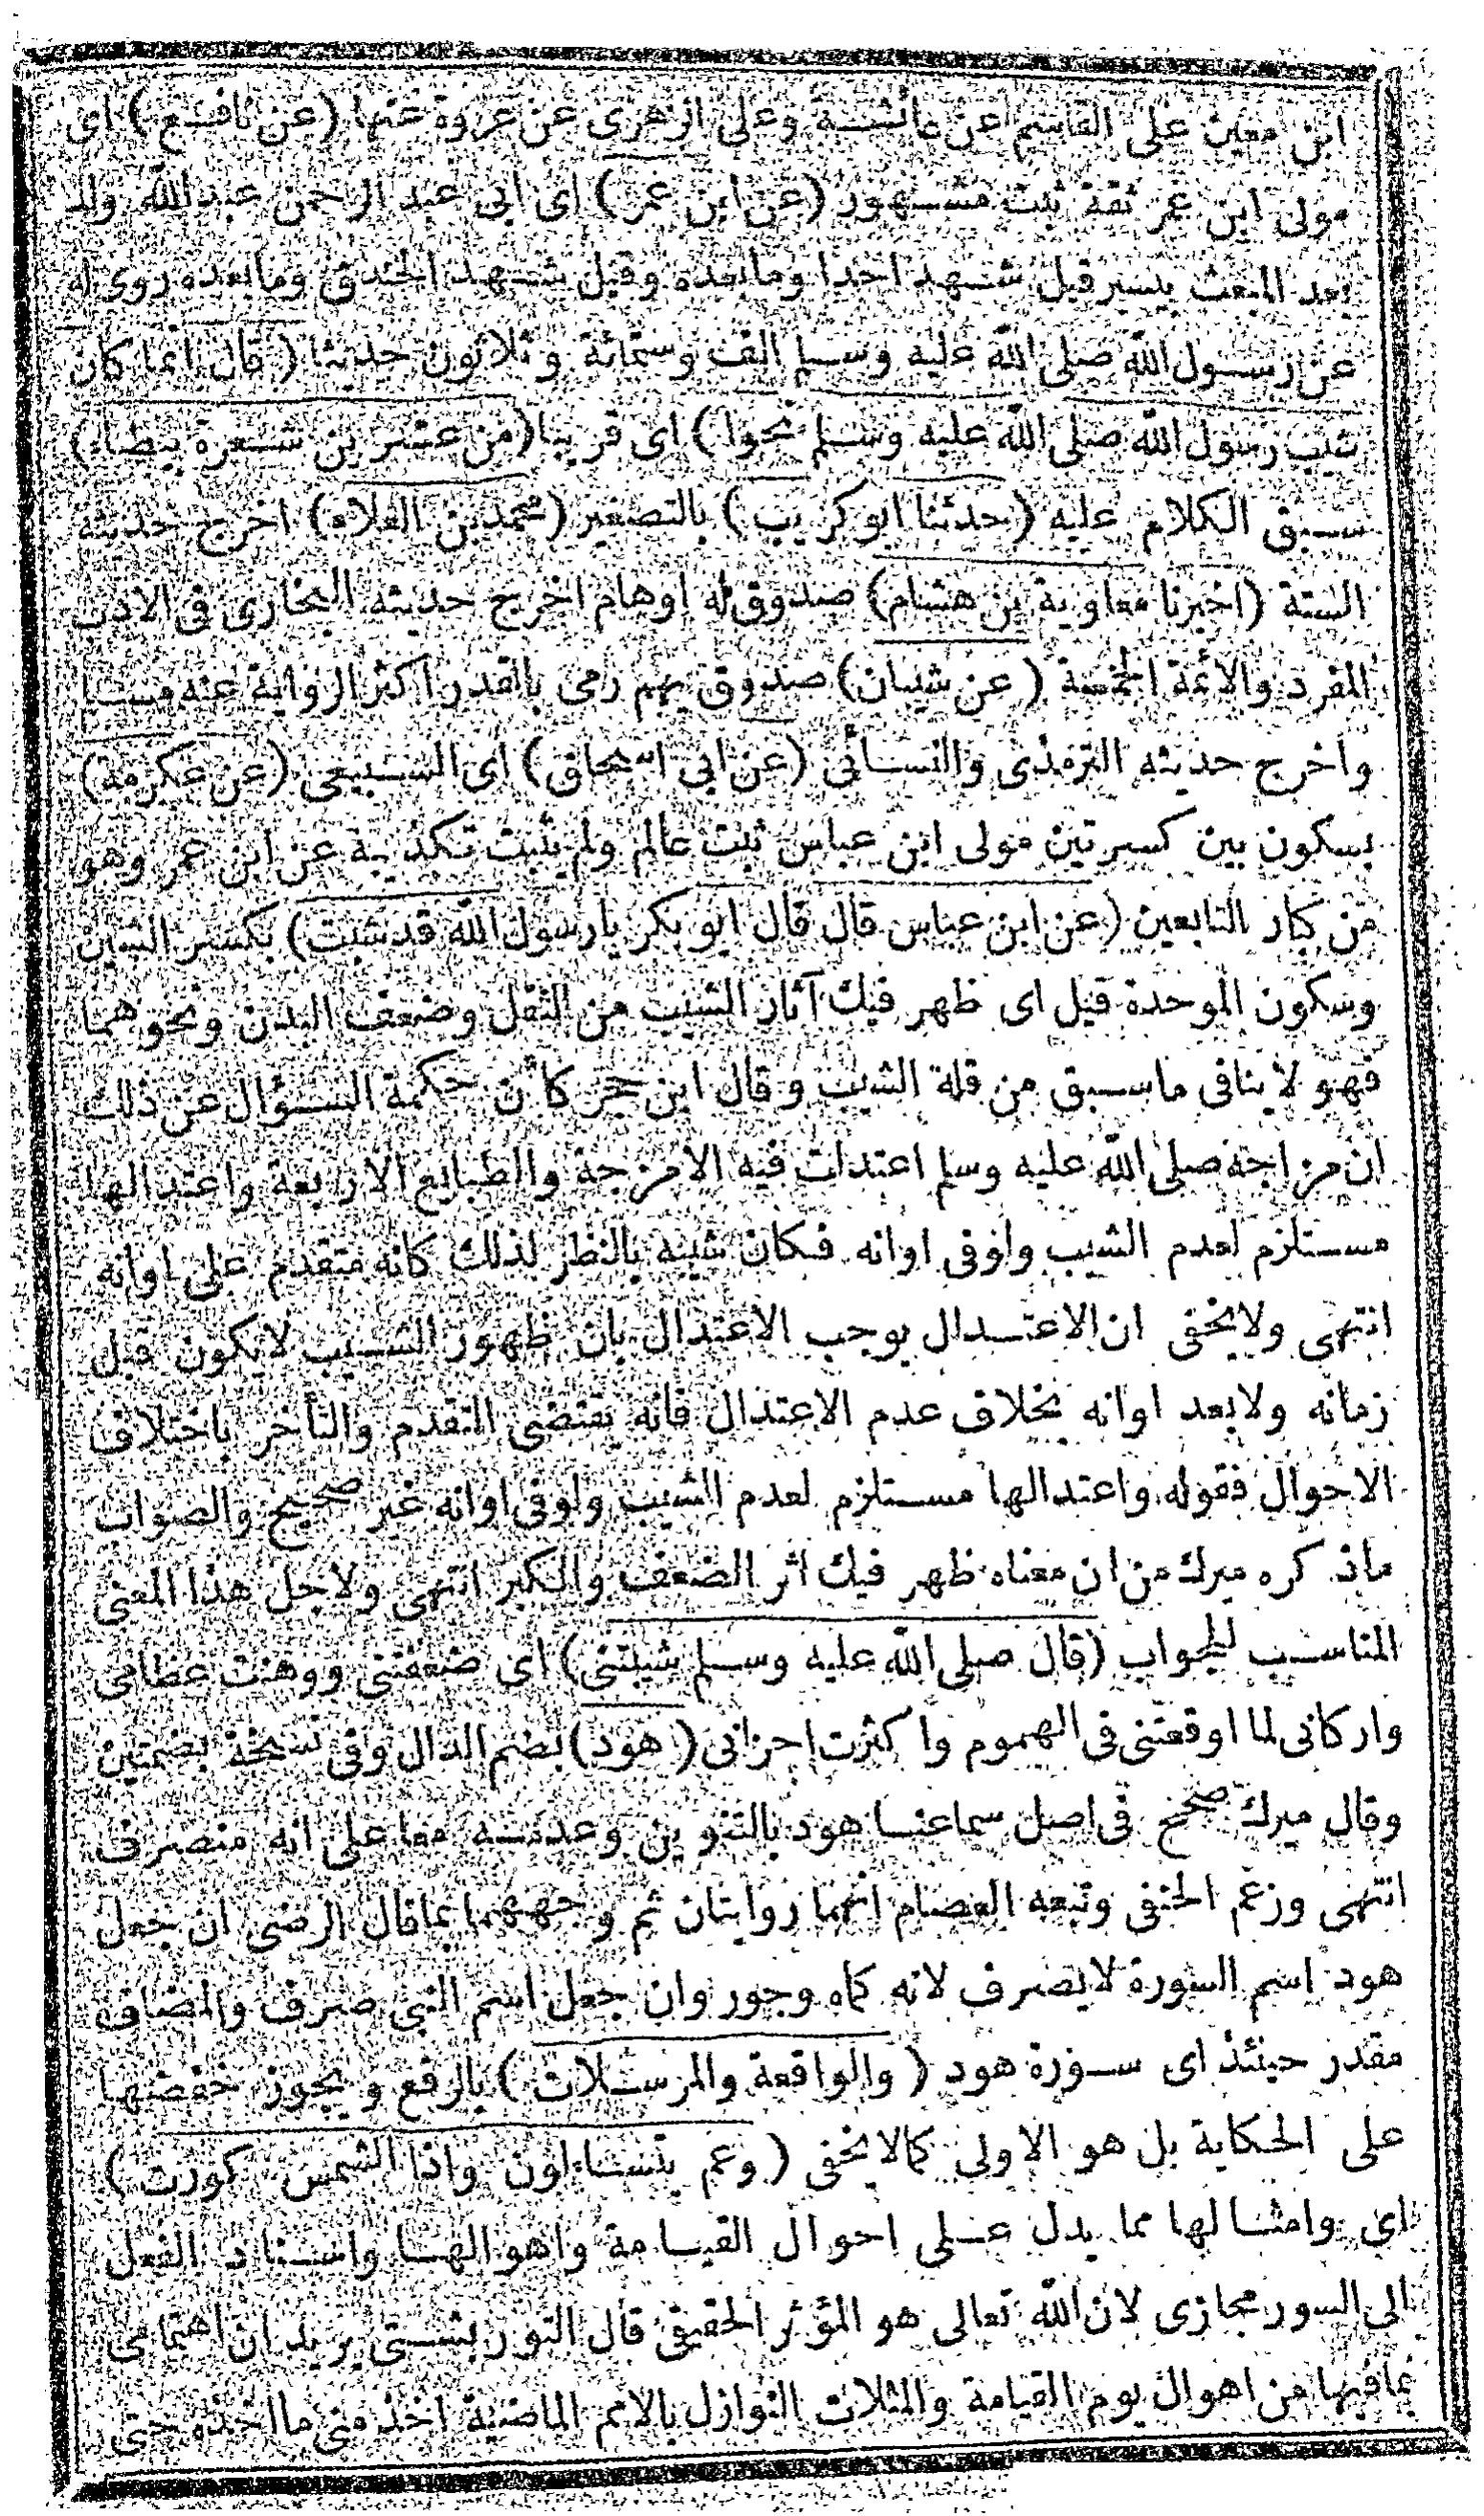 ابن معين على القاسم عن عائشة وعلى الزهرى عن عروة عنها (عن نافع) اى
مولى ابن عمر ثقة ثبت مشهور (عن ابن عمر) اى ابى عبد الرحمن عبد الله ولد
بعد المبعث بيسير قيل شهد احدا وما بعده وقيل شهد الخندق وما بعده روى له
عن رسول الله صلى الله عليه وسلم الف وستمائة وثلاثون حديثا (قال انما كان
شيب رسول الله صلى الله عليه وسلم نحوا) اى قريبا (من عشرين شعرة بيضاء)
سبق الكلام عليه (حدثنا ابو كريب) بالتصغير (محمد بن العلاء) اخرج حديثه
الستة (اخبرنا معاوية بن هشام) صدوق له اوهام اخرج حديثه البخارى فى الادب
المفرد والأئمة الخمسة (عن شيبان) صدوق يهم رمى بالقدر اكثر الرواية عنه مسلم
واخرج حديثه الترمذى والنسائى (عن ابى اسحاق) اى السبيعى (عن عكرمة)
بسكون بين كسرتين مولى ابن عباس ثبت عالم ولم يثبت تكذيبه عن ابن عمر وهو
من كبار التابعين (عن ابن عباس قال قال ابو بكر يا رسول الله قد شبت) بكسر الشين
وسكون الموحدة قيل اى ظهر فيك آثار الشيب من الثقل وضعف البدن ونحوهما
فهو لا ينافى ما سبق من قلة الشيب وقال ابن حجر كأن حكمة السؤال عن ذلك
ان مزاجه صلى الله عليه وسلم اعتدلت فيه الامزجة والطبايع الاربعة واعتدالها
مستلزم لعدم الشيب ولو فى اوانه فكان شيبه بالنظر لذلك كانه متقدم على اوانه
انتهى ولا يخفى ان الاعتدال يوجب الاعتدال بان ظهور الشيب لا يكون قبل
زمانه ولا بعد اوانه بخلاف عدم الاعتدال فانه يقتضى التقدم والتأخر باختلاف
الاحوال فقوله واعتدالها مستلزم لعدم الشيب ولو فى اوانه غير صحيح والصواب
ما ذكره ميرك من ان معناه ظهر فيك اثر الضعف والكبر انتهى ولاجل هذا المعنى
المناسب للجواب (قال صلى الله عليه وسلم شيبتنى) اى ضعفتنى ووهنت عظامى
واركانى لما اوقعتنى فى الهموم واكثرت احزانى (هود) بضم الدال وفى نسخة بضمتين
وقال ميرك صحح فى اصل سماعنا هود بالتنوين وعدمه معا على انه منصرف
انتهى وزعم الحنفى وتبعه العصام انهما روايتان ثم وجههما بما قال الرضى ان جعل
هود اسم السورة لا يصرف لانه كماه وجور وان جعل اسم النبى صرف والمضاف
مقدر حينئذ اى سورة هود (والواقعة والمرسلات) بالرفع ويجوز خفضها
على الحكاية بل هو الاولى كما لا يخفى (وعم يتساءلون واذا الشمس كورت)
اى وامثالها مما يدل على احوال القيامة واهوالها واسناد الفعل
الى السور مجازى لان الله تعالى هو المؤثر الحقيقى قال التوربشتى يريد ان اهتمامى
بما فيها من اهوال يوم القيامة والمثلات النوازل بالامم الماضية اخذ منى ما اخذه حتى